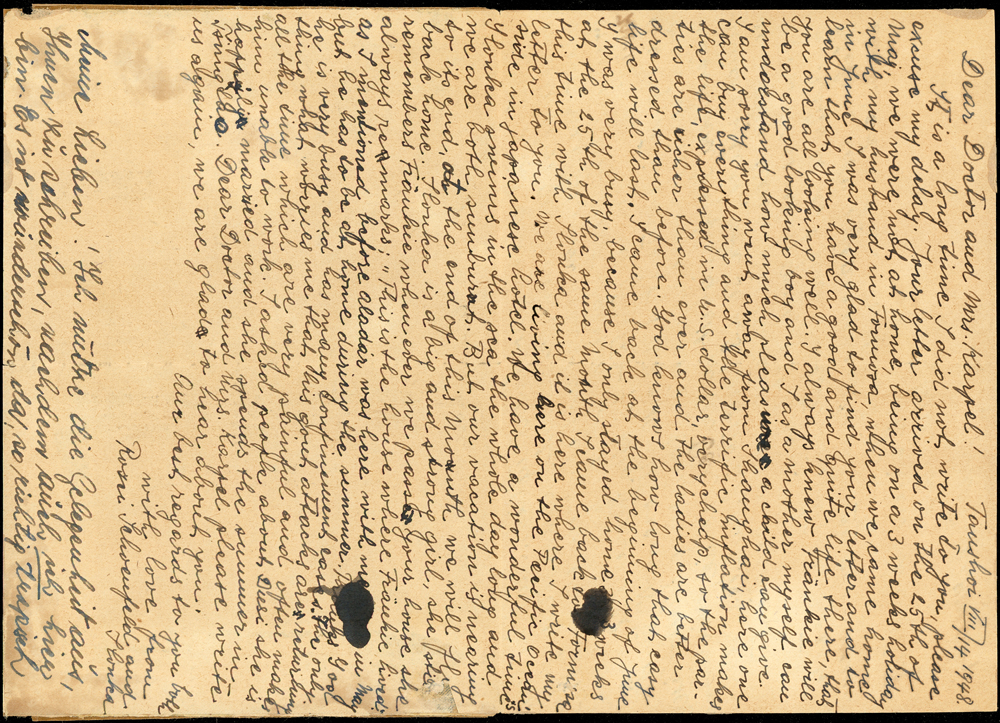 Tamshoi VIII/4 1948.
Dear Doctor and Mrs. Karpel!
It is a long time I did not write to you, please
excuse my delay. Your letter arrived on the 25th of
May, we were not at home, being on a 3 weeks holiday
with my husband in Formosa, when we came home
in June I was very glad to find your letter and to
learn that you have a good and quite life there, that
You are all looking well. I always knew Frankie will
be a good looking boy and I as a mother myself can
understand how much pleasure a child can give.
I am sorry you went away from Shanghai here one
can buy everything and the terrific inflation makes
the life, expressed in U.S. dollar, very cheap, so the par-
ties are richer than ever and the ladies are better
dressed than before. God knows how long that easy
life will last. I came back at the begining of June
I was very busy, because I only stayed home weeks
at the 25th of the same month I came back
this time with Ilonka and it is here where I write my
letter to you. We are living here on the Pacific Ocean
side in Japanese hotel. We have a wonderful time,
Ilonka swims in the sea the whole day long and
we are both sunburnt. But our vacation is nearing
to its end, at the end of this month we will fly
back home. Ilonka is a big and strong girl, she still
remembers Frankie whenever we pass your house she
always remarks: "This is the house where Frankie lived".
As I mentioned before Aladar was here with me in May
but he has to be at home during the summer.
He is very busy and has many confinement cases. The only
thing what worries me that his gout attacks are returning
all the time which are very painful and often makes
him unable to work. I asked people about she is
happily married and she spends the summer in
Tsing tao. Dear Doctor and Mrs. Karpel please write
us again, we are glad to hear about you.
Our best regards to you
with love from
Rosi Schoenfeld and
Ilonka
Meine Lieben! Ich nütze die Gelegenheit aus,
Ihnen zu schreiben, nachdem auch ich hier
bin. Es ist wunderschön da, so richtig typisch